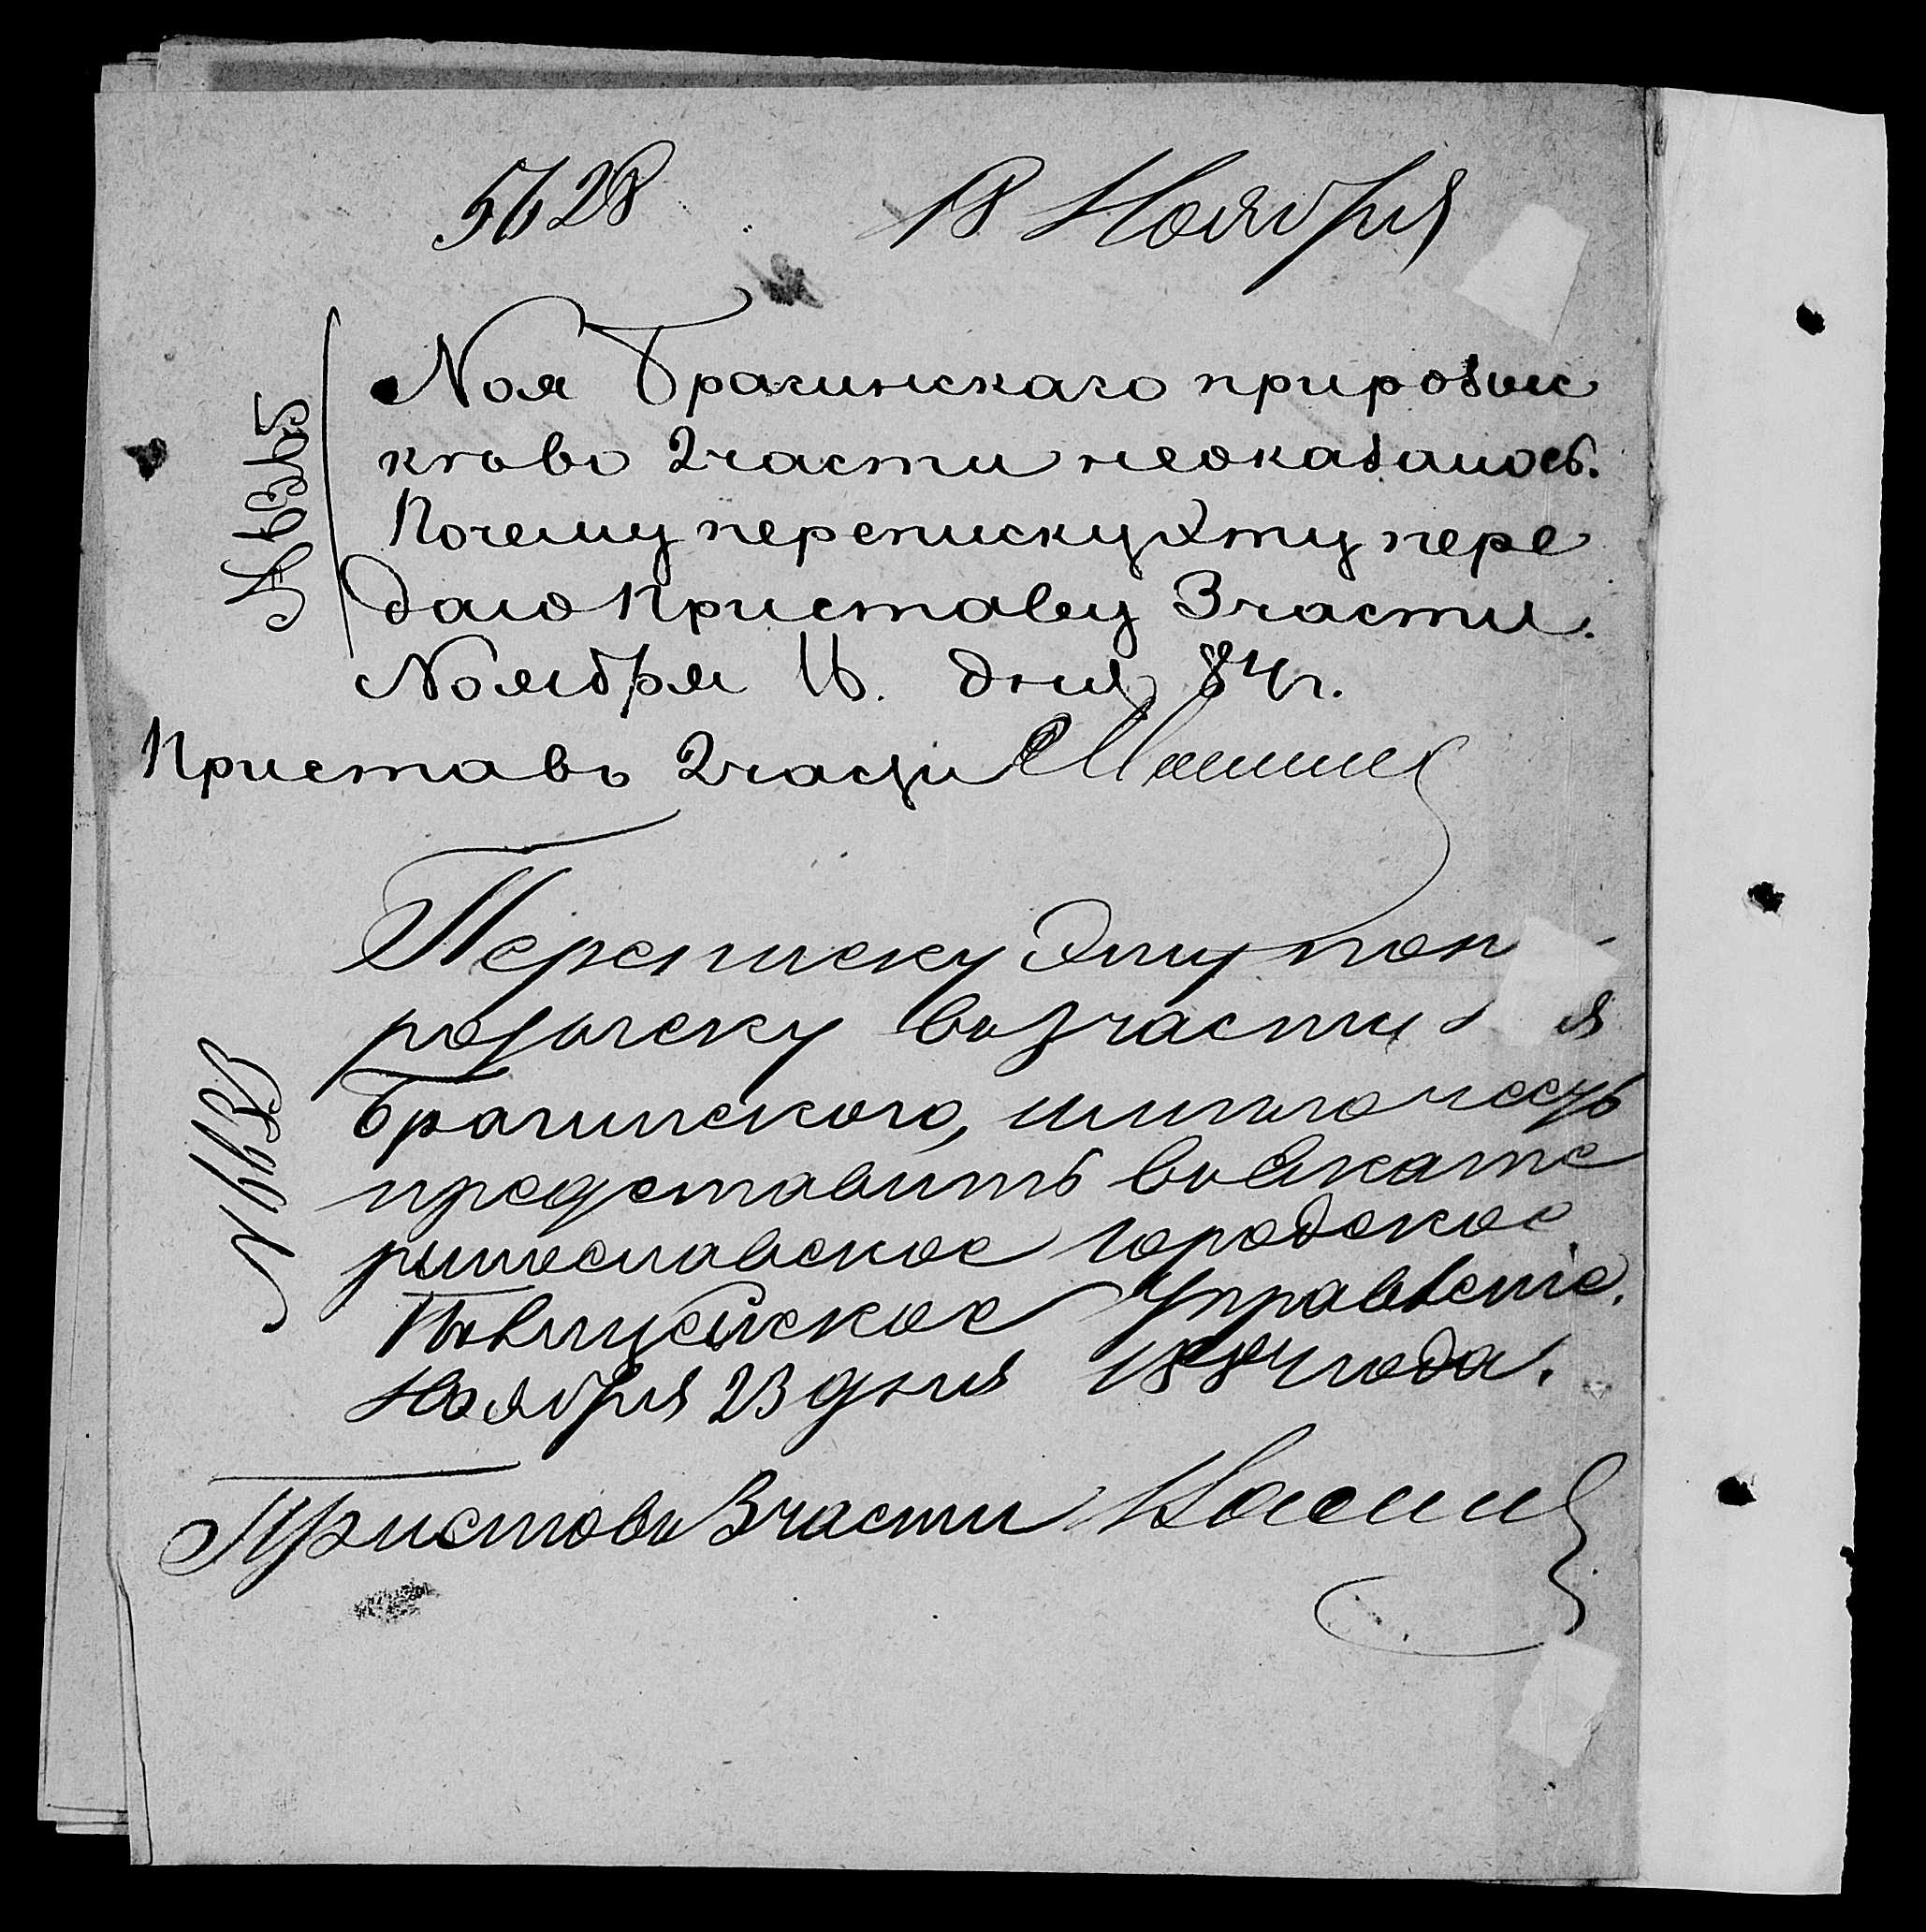 5628 18 Ноября
Ноя Брагинскаго при розыс
кѣ во 2 части не оказалось.
Почему переписку эту пере
даю Приставу 3 части.
Ноября 16. дня 84 г.
Приставъ 2 части
Переписку эту по
розыску въ 3 части я
Брагинского, имею честь
представить въ Екате
ринославское городское
Полицейское Управленіе.
Ноября 23 дня 1884 года.
Приставъ 3 части